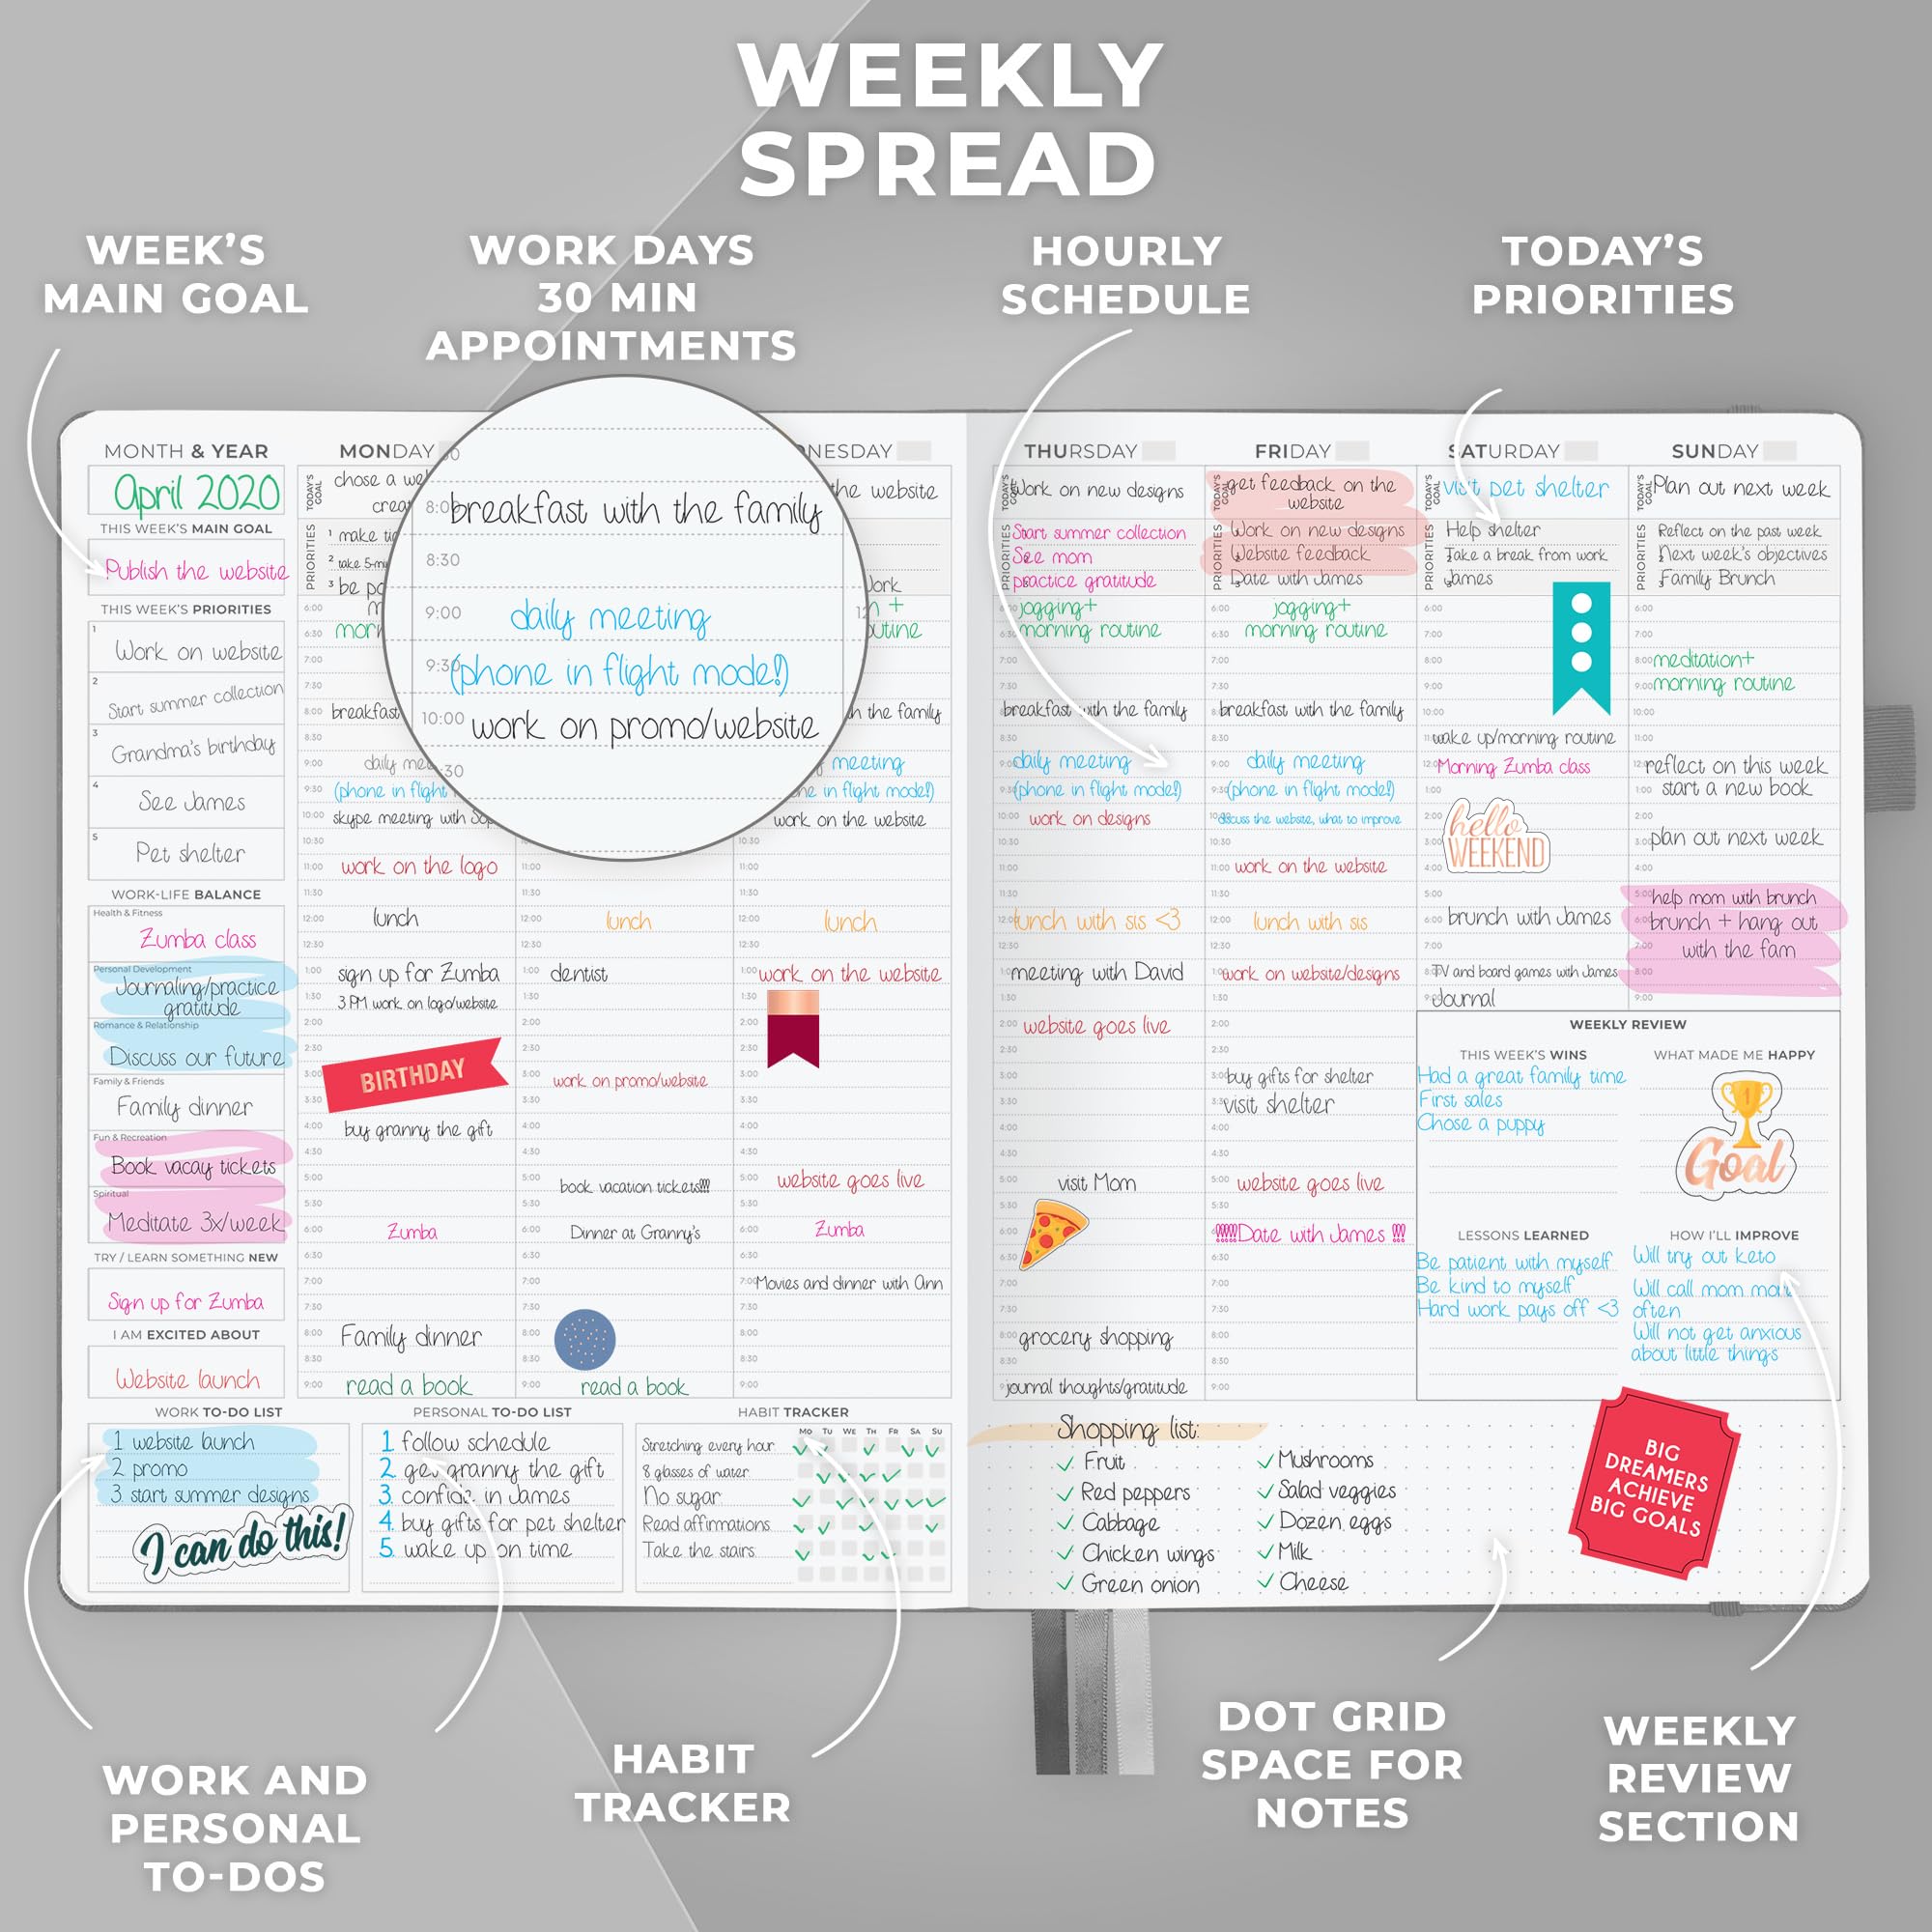 WEEKLY
SPREAD
WEEK'S
MAIN GOAL
WORK DAYS
30 MIN
APPOINTMENTS
HOURLY
SCHEDULE
TODAY'S
PRIORITIES
MONTH & YEAR
April 2020
THIS WEEK'S MAIN GOAL
Publish the website
THIS WEEK'S PRIORITIES
1 Work on website
2 Start summer collection
3 Grandma's birthday
4 See James
5 Pet shelter
WORK-LIFE BALANCE
Health & Fitness
Zumba class
Personal Development
Journaling/practice
gratitude
Romance & Relationship
Discuss our future
Family & Friends
Family dinner
Fun & Recreation
Book vacay tickets
Spiritual
Meditate 3x/week
TRY / LEARN SOMETHING NEW
Sign up for Zumba
I AM EXCITED ABOUT
Website launch
MONDAY
TODAY'S GOAL
chose a
PRIORITIES
1 make
2 take 5-min
3 be
6:00
6:30
7:00
7:30
8:00 breakfast
8:30
9:00 daily
9:30 (phone in flight
10:00 skype meeting with
10:30
11:00 work on the logo
11:30
12:00 lunch
12:30
1:00 sign up for Zumba
1:30 3 PM work on logo/website
2:00
2:30
BIRTHDAY
3:00
3:30
4:00 buy granny the gift
4:30
5:00
5:30
6:00 Zumba
6:30
7:00
7:30
8:00 Family dinner
8:30
9:00 read a book
8:00 breakfast with the family
8:30
9:00 daily meeting
9:30 (phone in flight mode!)
10:00 work on promo/website
:30
11:00
11:30
12:00 lunch
12:30
1:00 dentist
1:30
2:00
2:30
3:00 work on promo/website
3:30
4:00
4:30
5:00 book vacation tickets!!!!
5:30
6:00 Dinner at Granny's
6:30
7:00
7:30
8:00
8:30
9:00 read a book
NESDAY
the website
Work
+
routine
the family
meeting
in flight mode!)
work on the website
10:30
11:00
11:30
12:00 lunch
12:30
1:00 work on the website
1:30
2:00
2:30
3:00
3:30
4:00
4:30
5:00 website goes live
5:30
6:00 Zumba
6:30
7:00 Movies and dinner with Ann
7:30
8:00
8:30
9:00
THURSDAY
TODAY'S GOAL
Work on new designs
PRIORITIES
Start summer collection
See mom
practice gratitude
6:00 jogging+
6:30 morning routine
7:00
7:30
8:00 breakfast with the family
8:30
9:00 daily meeting
9:30 (phone in flight mode!)
10:00 work on designs
10:30
11:00
11:30
12:00 lunch with sis <3
12:30
1:00 meeting with David
1:30
2:00 website goes live
2:30
3:00
3:30
4:00
4:30
5:00 visit Mom
5:30
6:00
6:30
7:00
7:30
8:00 grocery shopping
8:30
9:00 journal thoughts/gratitude
FRIDAY
TODAY'S GOAL
get feedback on the
website
PRIORITIES
Work on new designs
Website feedback
3 Date with James
6:00 jogging+
6:30 morning routine
7:00
7:30
8:00 breakfast with the family
8:30
9:00 daily meeting
9:30 (phone in flight mode!)
10:00 discuss the website, what to improve
10:30
11:00 work on the website
11:30
12:00 lunch with sis
12:30
1:00 work on website/designs
1:30
2:00
2:30
3:00 buy gifts for shelter
3:30 visit shelter
4:00
4:30
5:00 website goes live
5:30
6:00 !!!!!!Date with James !!!!
6:30
7:00
7:30
8:00
8:30
9:00
SATURDAY
TODAY'S GOAL
visit pet shelter
PRIORITIES
Help shelter
2 Take a break from work
3 James
6:00
7:00
8:00
9:00
10:00
11:00 wake up/morning routine
12:00 Morning Zumba class
1:00
2:00
hello
WEEKEND
3:00
4:00
5:00
6:00 brunch with James
7:00
8:00 TV and board games with James
9:00 Journal
SUNDAY
TODAY'S GOAL
Plan out next week
PRIORITIES
Reflect on the past week
2 Next week's objectives
3 Family Brunch
6:00
7:00
8:00 meditation+
9:00 morning routine
10:00
11:00
12:00 reflect on this week
1:00 start a new book
2:00
3:00 plan out next week
4:00
5:00 help mom with brunch
6:00 brunch + hang out
7:00 with the fam
8:00
9:00
WEEKLY REVIEW
THIS WEEK'S WINS
Had a great family time
First sales
Chose a puppy
WHAT MADE ME HAPPY
1
Goal
LESSONS LEARNED
Be patient with myself
Be kind to myself
Hard work pays off <3
HOW I'LL IMPROVE
Will try out keto
Will call mom more
often
Will not get anxious
about little things
WORK TO-DO LIST
1 website launch
2 promo
3. start summer designs
I can do this!
PERSONAL TO-DO LIST
1 follow schedule
2. get granny the gift
3. confide in James
4. buy gifts for pet shelter
5. wake up on time
HABIT TRACKER
Mo Tu We Th Fr Sa Su
Stretching every hour
8 glasses of water
No sugar
Read affirmations
Take the stairs
Shopping list:
Fruit
Red peppers
Cabbage
Chicken wings
Green onion
Mushrooms
Salad veggies
Dozen eggs
Milk
Cheese
BIG
DREAMERS
ACHIEVE
BIG GOALS
WORK AND
PERSONAL
TO-DOS
HABIT
TRACKER
DOT GRID
SPACE FOR
NOTES
WEEKLY
REVIEW
SECTION